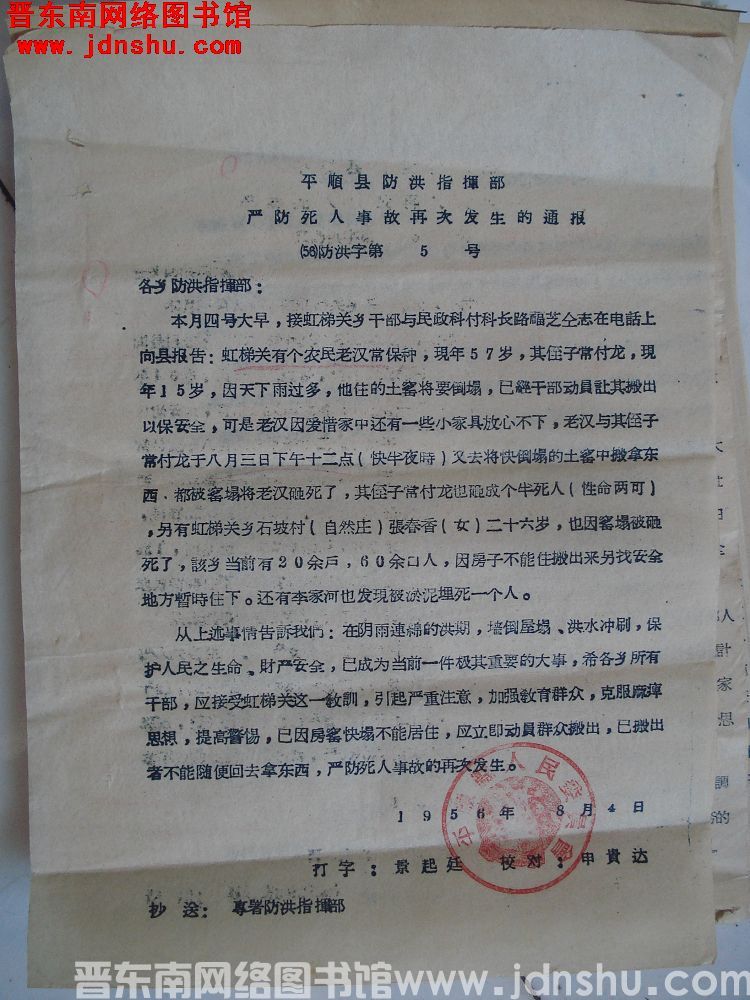 晋东南网络图书馆
www.jdnshu.com
平順县防洪指揮部
严防死人事故再次发生的通报
(56)防洪字第 5 号
各乡防洪指揮部：
本月四号大早，接虹梯关乡干部与民政科付科长路福芝仝志在电話上
向县报告：虹梯关有个农民老汉常保种，現年57岁，其侄子常付龙，現
年15岁，因天下雨过多，他住的土窰将要倒塌，已經干部动員让其搬出
以保安全，可是老汉因爱惜家中还有一些小家具放心不下，老汉与其侄子
常付龙于八月三日下午十二点（快半夜時）又去将快倒塌的土窰中搬拿东
西．都被窰塌将老汉砸死了，其侄子常付龙也砸成个半死人（性命两可）
，另有虹梯关乡石坡村（自然庄）張春香（女）二十六岁，也因窰塌被砸
死了，該乡当前有20余戶，60余口人，因房子不能住搬出来另找安全
地方暫時住下。还有李家河也发現被淤泥埋死一个人。
从上述事情告訴我們：在阴雨連綿的洪期，墙倒屋塌、洪水冲刷，保
护人民之生命、財产安全，已成为当前一件极其重要的大事，希各乡所有
干部，应接受虹梯关这一敎訓，引起严重注意，加强敎育群众，克服麻痺
思想，提高警惕，已因房窰快塌不能居住，应立即动員群众搬出，已搬出
者不能随便回去拿东西，严防死人事故的再次发生。
1956年 8月4日
打字：景起廷 校对：申貴达
抄送： 專署防洪指揮部
晋东南网络图书馆www.jdnshu.com